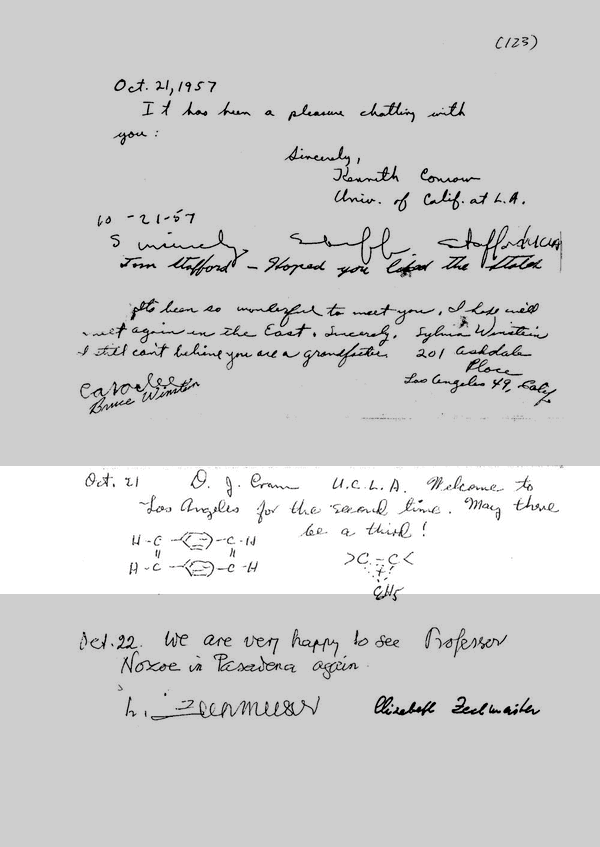 (123)
Oct. 21, 1957
It has been a pleasure chatting with
you:
Sincerely,
Kenneth Conrow
Univ. of Calif. at L.A.
10 -21-57
Sincerely, Stafford UCLA
Tom Stafford - Hoped you liked the States
It's been so wonderful to meet you. I hope we'll
meet again in the East. Sincerely, Sylvia Winstein
I still can't believe you are a grandfather. 201 Ashdale
Place
Carolee Los Angeles 49, Calif.
Bruce Winstein
Oct. 21 D. J. Cram U.C.L.A. Welcome to
Los Angeles for the second time. May there
be a third!
H-C- -C-H
H-C- -C-H
>C-C<
+
C6H5
Oct. 22. We are very happy to see Professor
Nozoe in Pasadena again.
L. Zechmeister Elizabeth Zechmeister